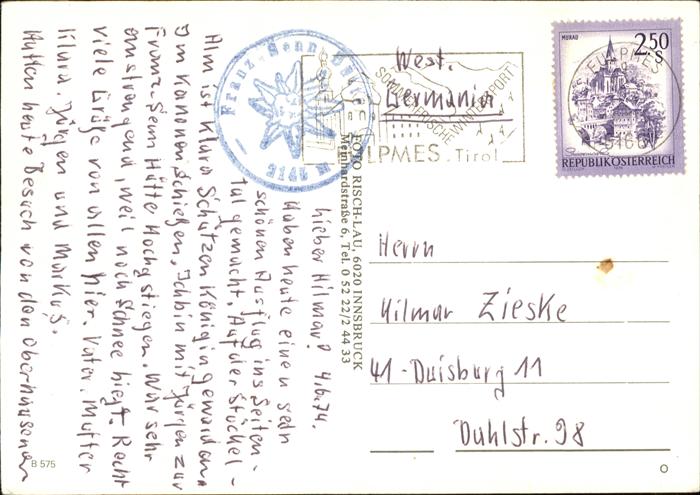 Lieber Hilmar! 4.6.74.
Haben heute einen sehr
schönen Ausflug ins Seiten-
tal gemacht. Auf der Stöckel-
Alm ist Klara Schützen Königin geworden.
Im Kanonen schießen. Ich bin mit Jürgen zur
Franz-Senn Hütte Hochgstiegen. War sehr
anstrengend, weil noch Schnee liegt. Recht
viele Grüße von allen hier. Vater. Mutter
Klara. Jürgen und Markus.
Hatten heute Besuch von den Oberhausenern
Franz-Senn-Hütte
2149 m
FOTO RISCH-LAU, 6020 INNSBRUCK
Meinhardstraße 6, Tel. 0 52 22/2 44 33
West.
Germanien
SOMMERFRISCHE WINTERSPORT
FULPMES · Tirol
FULPMES
A-6166
MURAU
2.50
S
REPUBLIK ÖSTERREICH
Herrn
Hilmar Zieske
41-Duisburg 11
Dahlstr. 98
B 575